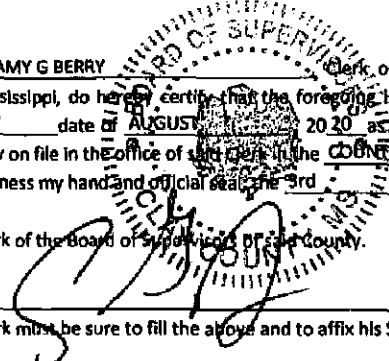 AMY G BERRY Clerk o
sissippi, do hereby certify that the foregoing
date of AUGUST 20 20 as
y on file in the office of said Clerk in the COUNTY
ness my hand and official seal, the 3rd
rk of the Board of Supervisors of said County.
rk must be sure to fill the above and to affix his S
BOARD OF SUPERVISORS
CLAY COUNTY MS